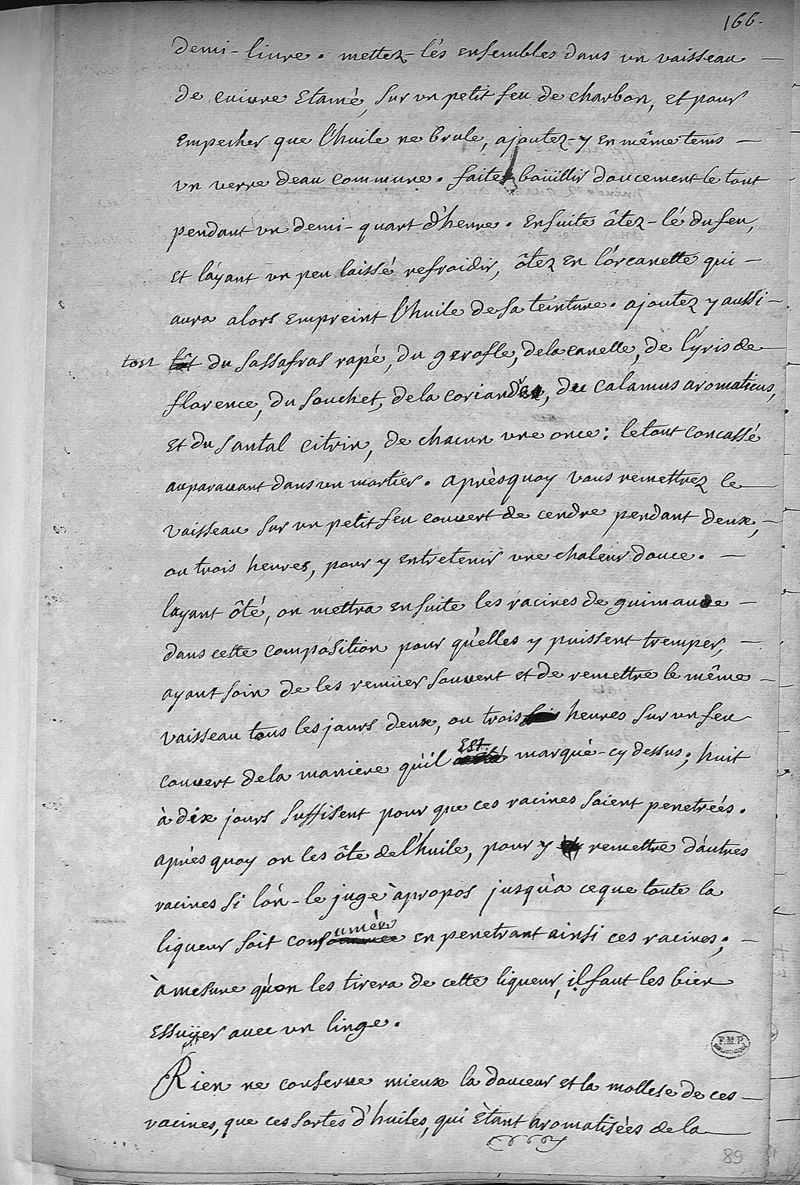 166.
demi-livre. mettez-lés ensembles dans un vaisseau
de cuivre étamé, sur un petit feu de charbon, et pour
empecher que l'huile ne brule, ajoutez-y en même tems
un verre deau commune. faites boüillir doucement le tout
pendant un demi-quart d'heure. ensuite ôtez-lé du feu,
et láyant un peu laissé refroidir, ôtez en l'orcanette qui
aura alors empreint l'huile de sa teinture. ajoutez y aussi-
tost du sassafras rapé, du gerofle, de la canelle, de l'yris de
florence, du souchet, de la coriandre, du calamus aromaticus,
et du santal citrin, de chacun une once: le tout concassé
auparavant dans un mortier. aprèsquoy vous remettrez le
vaisseau sur un petit feu couvert de cendre pendant deux,
ou trois heures, pour y entretenir une chaleur douce.
layant ôté, on mettra ensuite les racines de guimauve
dans cette composition pour qu'elles y puissent tremper,
ayant soin de les remüer souvent et de remettre le même
vaisseau tous les jours deux, ou trois heures sur un feu
couvert de la maniere qu'il est marqué-cy dessus; huit
à dix jours suffisent pour que ces racines soient penetrées.
aprés quoy on les ôte de l'huile, pour y remettre d'autres
racines si l'on-le juge àpropos jusqu'a ce que toute la
liqueur soit consumée en penetrant ainsi ces racines;
à mesure qu'on les tirera de cette liqueur, il faut les bien
essuÿer avec un linge.
Rien ne conserve mieux la douceur et la mollese de ces
racines, que ces sortes d'huiles, qui étant aromatisées de la
F.M.P.
89